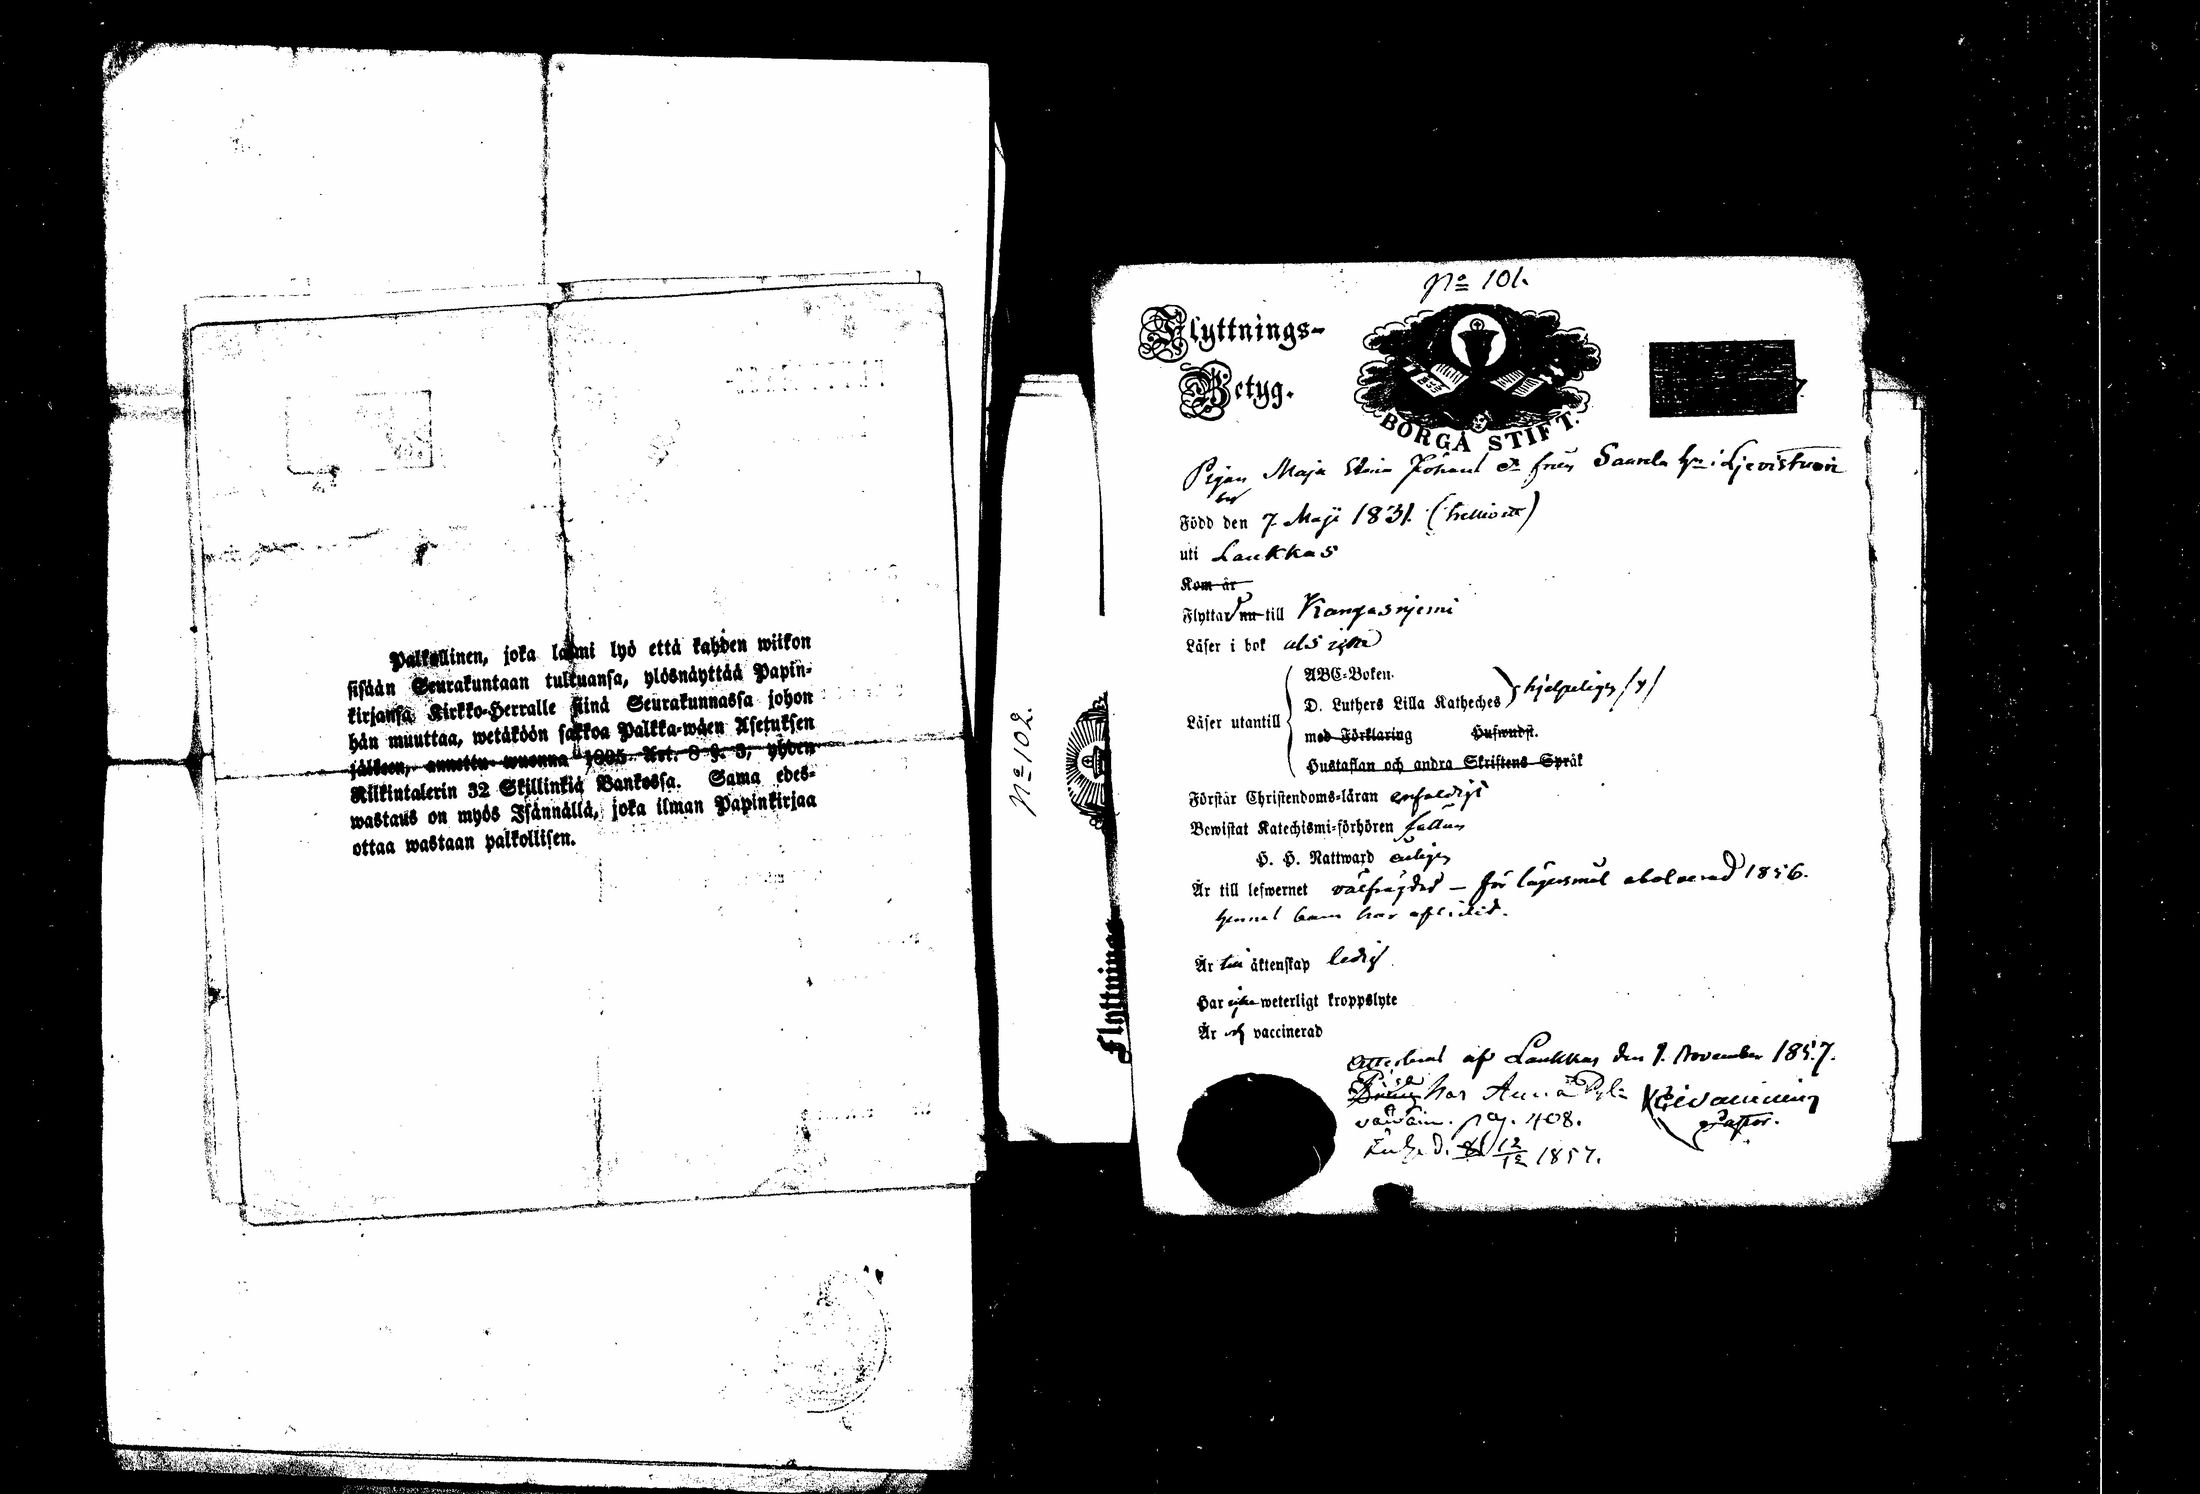 Palkollinen, joka laimi lyö että kahden wiikon
sisään Seurakuntaan tultuansa, ylösnäyttää Papin-
kirjansa Kirkko-Herralle siinä Seurakunnassa johon
hän muuttaa, wetäköön sakkoa Palkka-wäen Asetuksen
jälkeen, annettu wuonna 1805 Art. 8 §. 3, yhden
Riikintalerin 32 Skillinkiä Bankossa. Sama edes-
wastaus on myös Isännällä, joka ilman Papinkirjaa
ottaa wastaan palkollisen.
No 102.
Flyttnings
No 101.
Flyttnings-
Betyg.
BORGÅ STIFT.
Pigan Maja Johansd från Saarela i
Född den 7 Maji 1831.
uti Laukkas
Kom år
Flyttar nu till Kangasniemi
Läser i bok
Läser utantill
ABC-Boken.
D. Luthers Lilla Katheches hjelpeligen
med Förklaring Hufwudst.
Hustaflan och andra Skriftens Språk
Förstår Christendoms-läran enfaldigt
Bewistat Katechismi-förhören sällan
H. H. Nattward årligen
Är till lefwernet välfrägdad – för lägersmål absolverad 1856.
hennes barn har aflidit.
Är till äktenskap ledig
Har icke weterligt kroppslyte
Är och vaccinerad
Attesterad af Laukkas den 9. November 1857.
har Anna
pag. 408.
Pastor.
d. 12/12 1857.